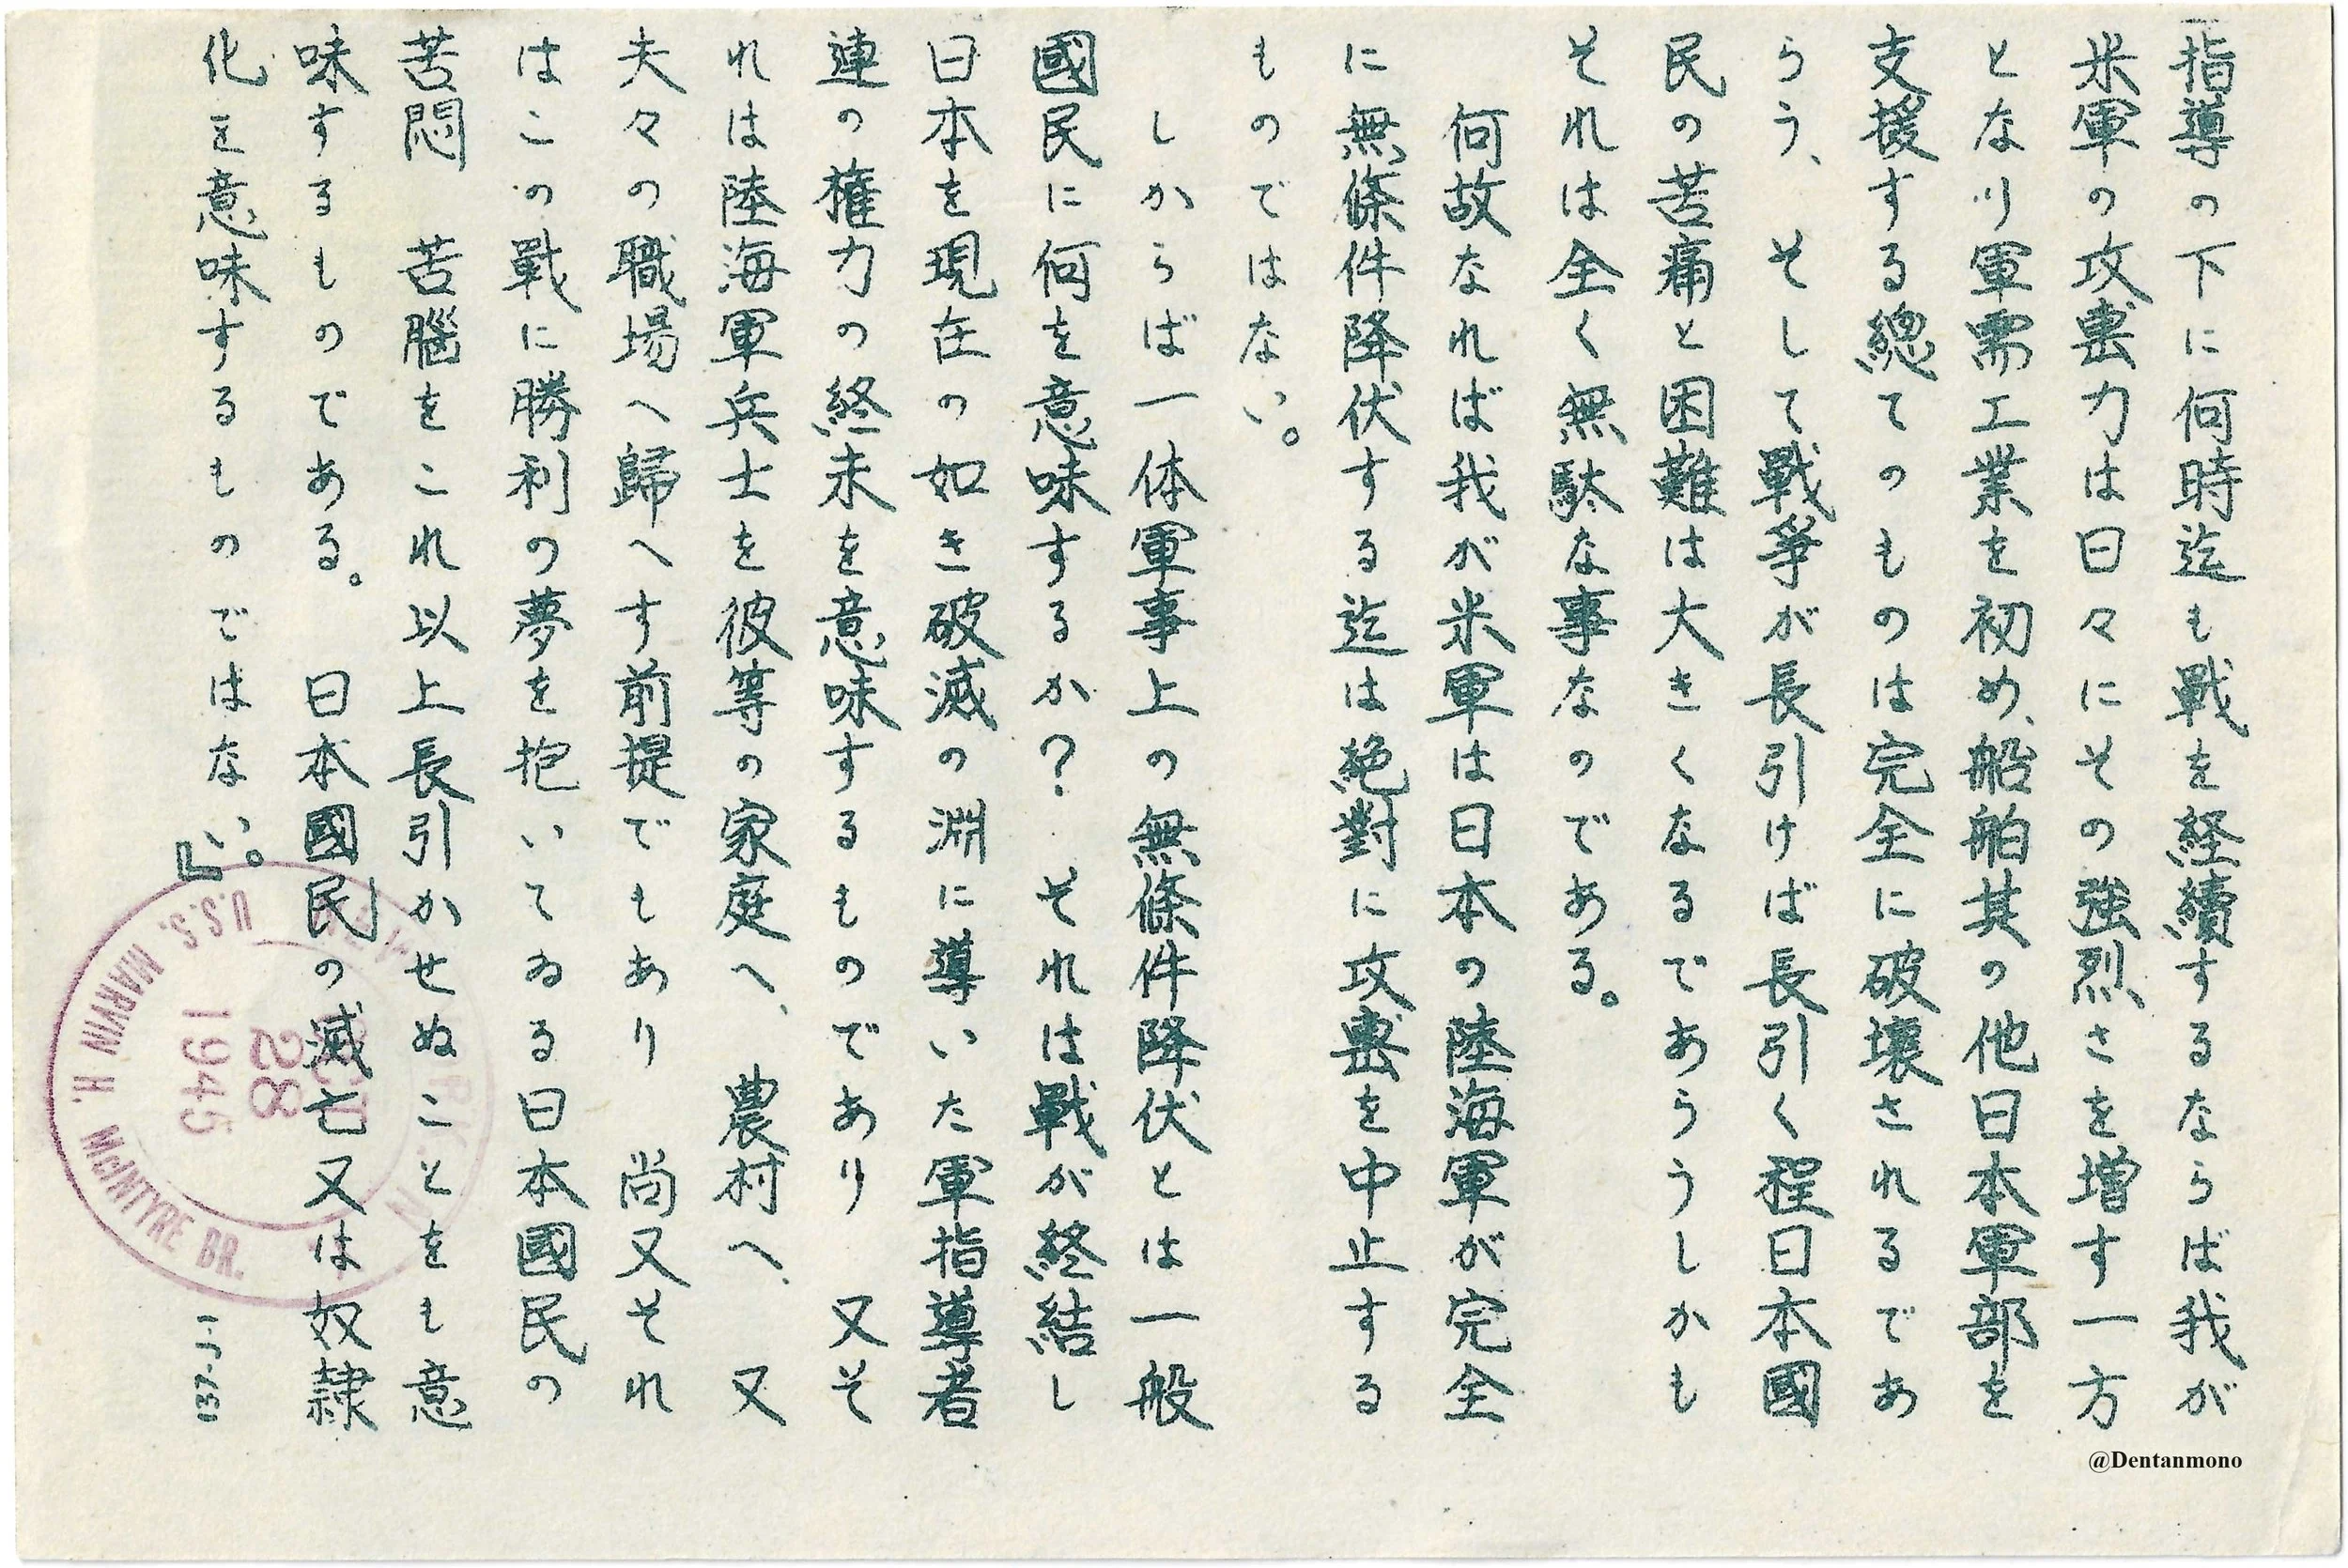 指導の下に何時迄も戰を経續するならば我が
米軍の攻擊力は日々にその強烈さを増す一方
となり軍需工業を初め、船舶其の他日本軍部を
支援する總てのものは完全に破壊されるであ
らう、そして戰爭が長引けば長引く程日本國
民の苦痛と困難は大きくなるであらうしかも
それは全く無駄な事なのである。
何故なれば我が米軍は日本の陸海軍が完全
に無條件降伏する迄は絶對に攻擊を中止する
ものではない。
しからば一体軍事上の無條件降伏とは一般
國民に何を意味するか？それは戰が終結し
日本を現在の如き破滅の淵に導いた軍指導者
連の権力の終末を意味するものであり又そ
れは陸海軍兵士を彼等の家庭へ、農村へ、又
夫々の職場へ歸へす前提でもあり尚又それ
はこの戰に勝利の夢を抱いてゐる日本國民の
苦悶 苦腦をこれ以上長引かせぬことをも意
味するものである。 日本國民の滅亡又は奴隷
化を意味するものではない。』
U.S.S. MARVIN H. McINTYRE BR.
28
1945
@Dentanmono